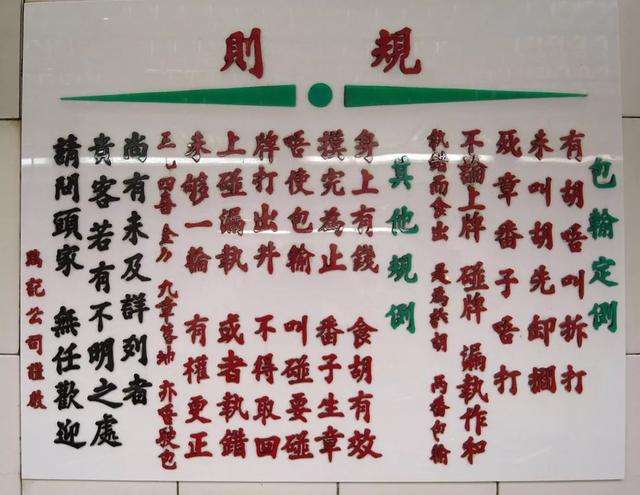 規則
包輸定例
有胡唔叫拆打
未叫胡先卸
死章番子唔打
不論上牌 碰牌 漏執作和
執錯而食出 是為詐胡
其他規例
身上有錢 食胡有效
撲完為止 番子生章
唔使包輸 叫碰要碰
牌打出 不得取回
上碰漏執 或者執錯
未够一輪 有權更正
四喜 九章落地 亦唔使包
尚有未及詳列者
貴客若有不明之處
請問頭家 無任歡迎
記公司謹啟